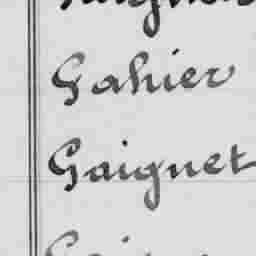 Gahier
Gaignet